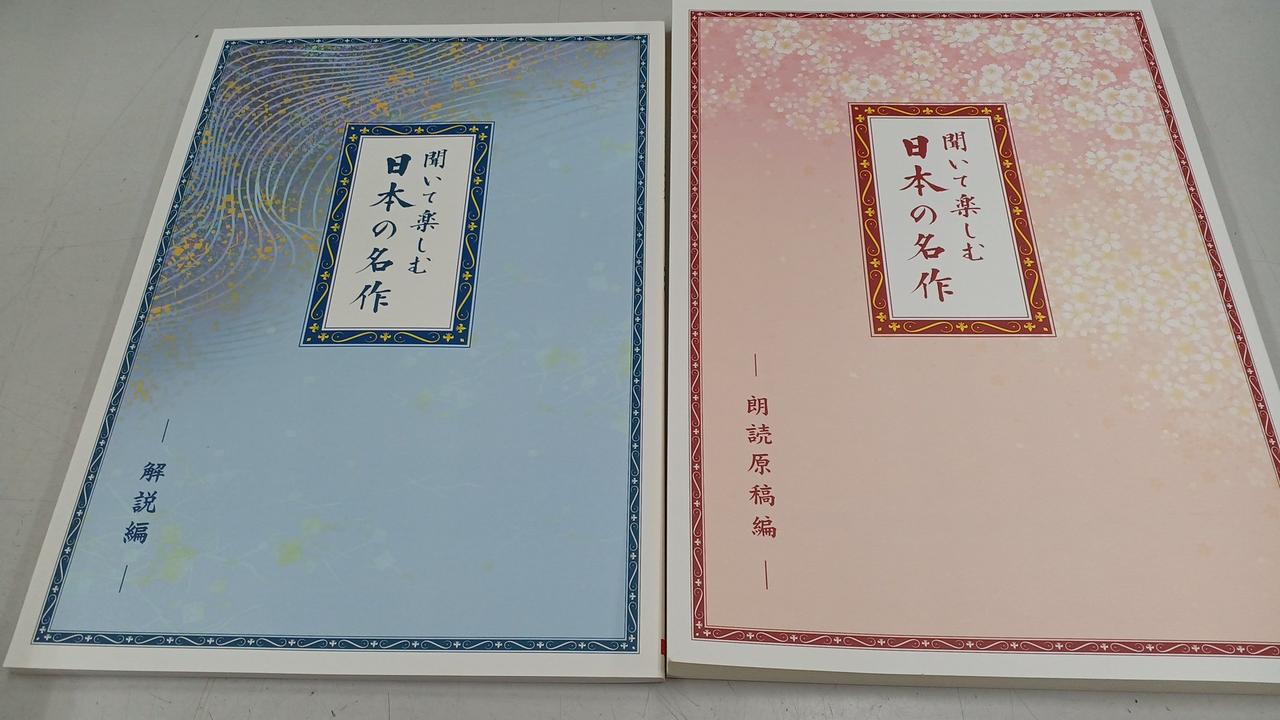 聞いて楽しむ
日本の名作
―解説編―
聞いて楽しむ
日本の名作
―朗読原稿編―